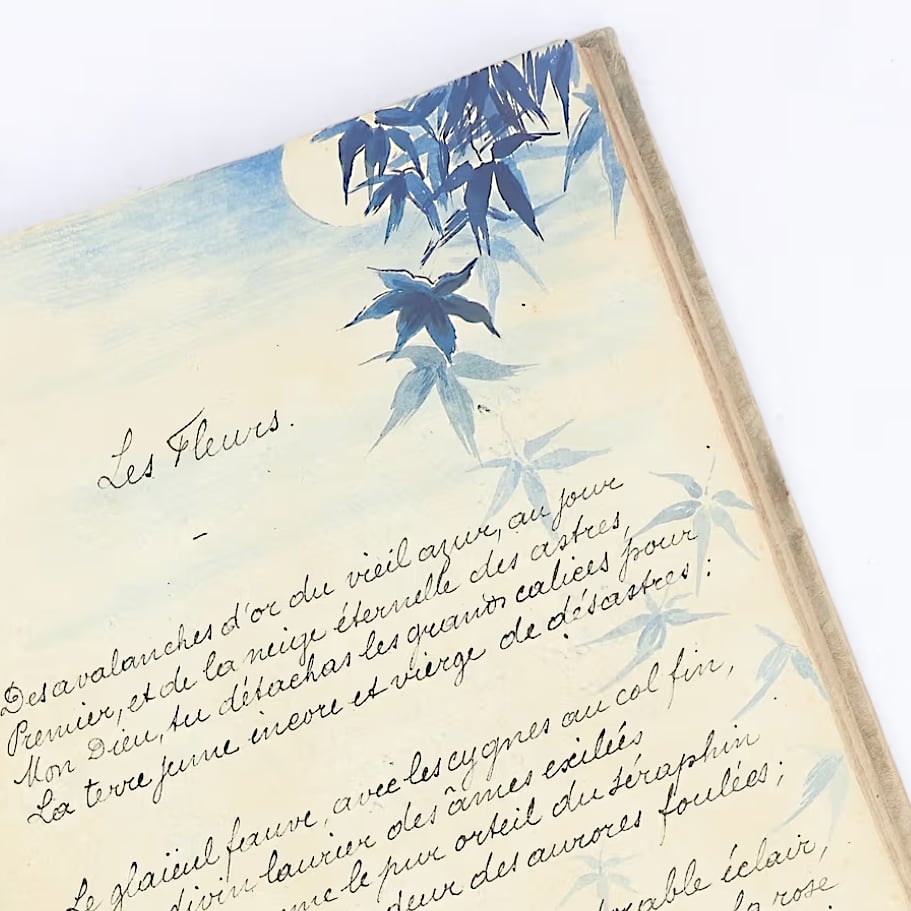 Les Fleurs.
-
Des avalanches d'or du vieil azur, au jour
Premier, et de la neige éternelle des astres,
Mon Dieu, tu détachas les grands calices pour
La terre jeune encore et vierge de désastres :
Le glaïeul fauve, avec les cygnes au col fin,
divin laurier des âmes exilées
me le pur orteil du séraphin
deur des aurores foulées ;
éclair,
la rose